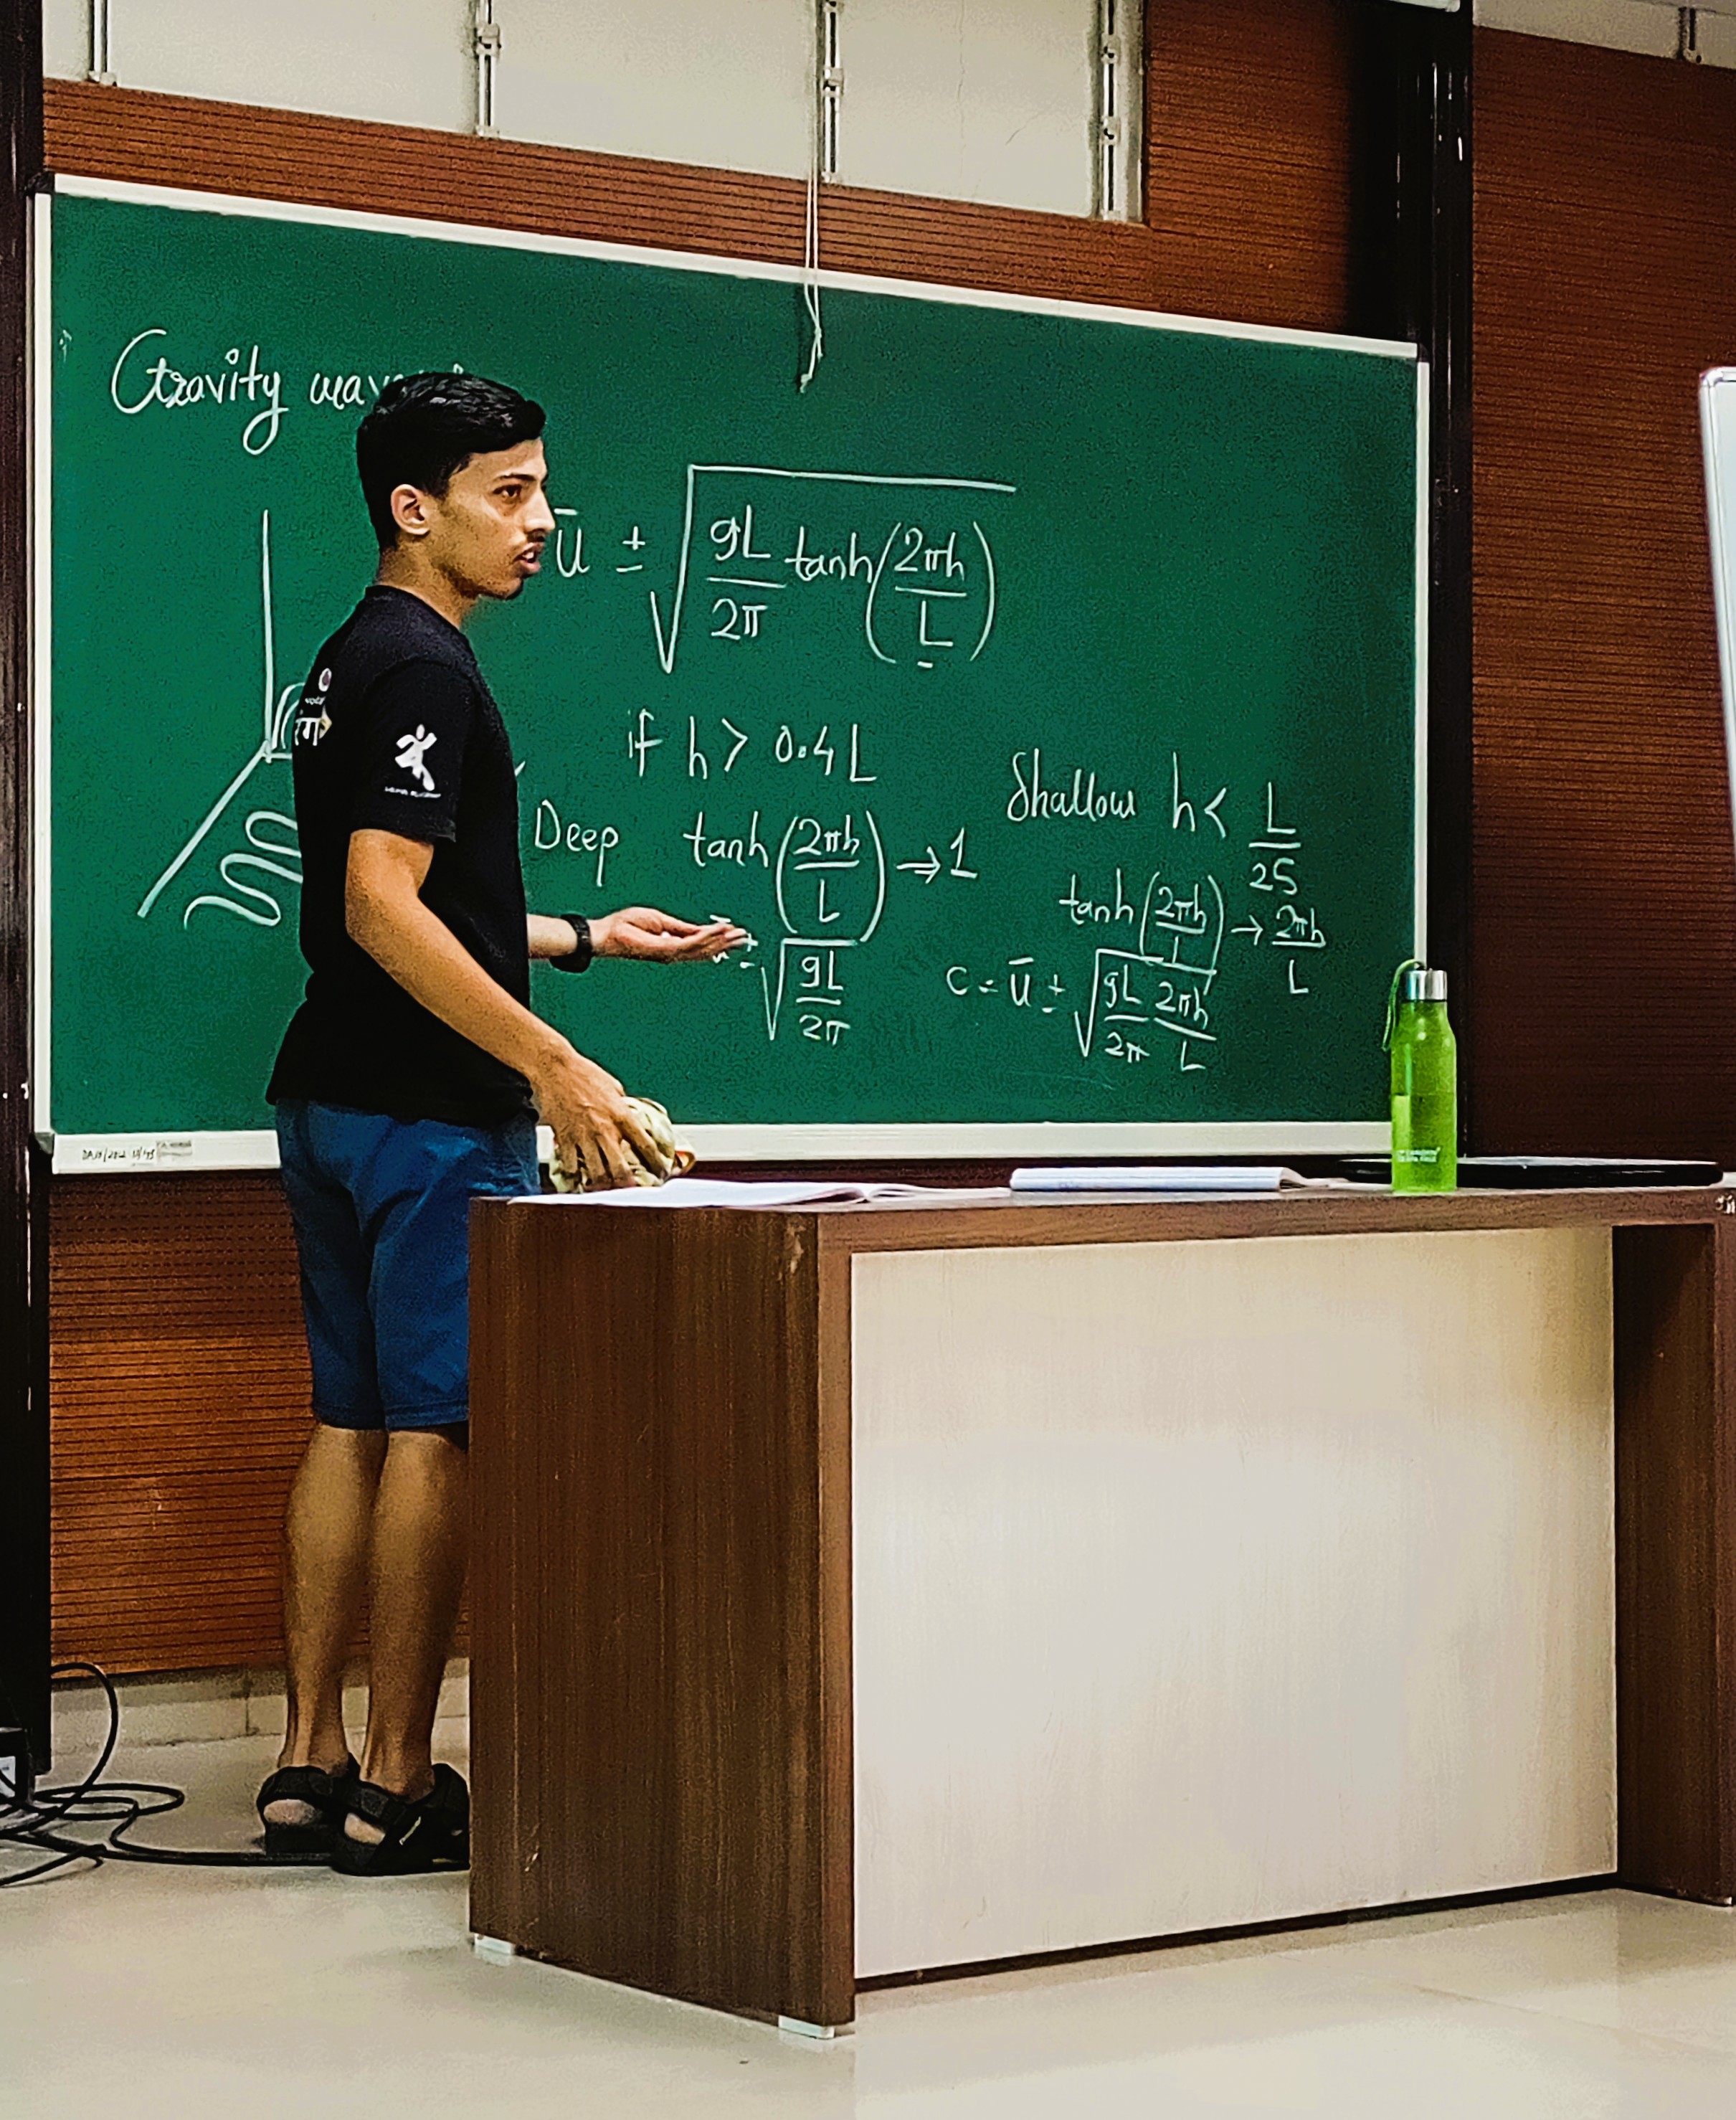 Gravity
ū ± √(gL/2π tanh(2πh/L))
if h > 0.4 L
Deep tanh(2πh/L) → 1
± √(gL/2π)
Shallow h < L/25
tanh(2πh/L) → 2πh/L
c = ū ± √(gL/2π 2πh/L)